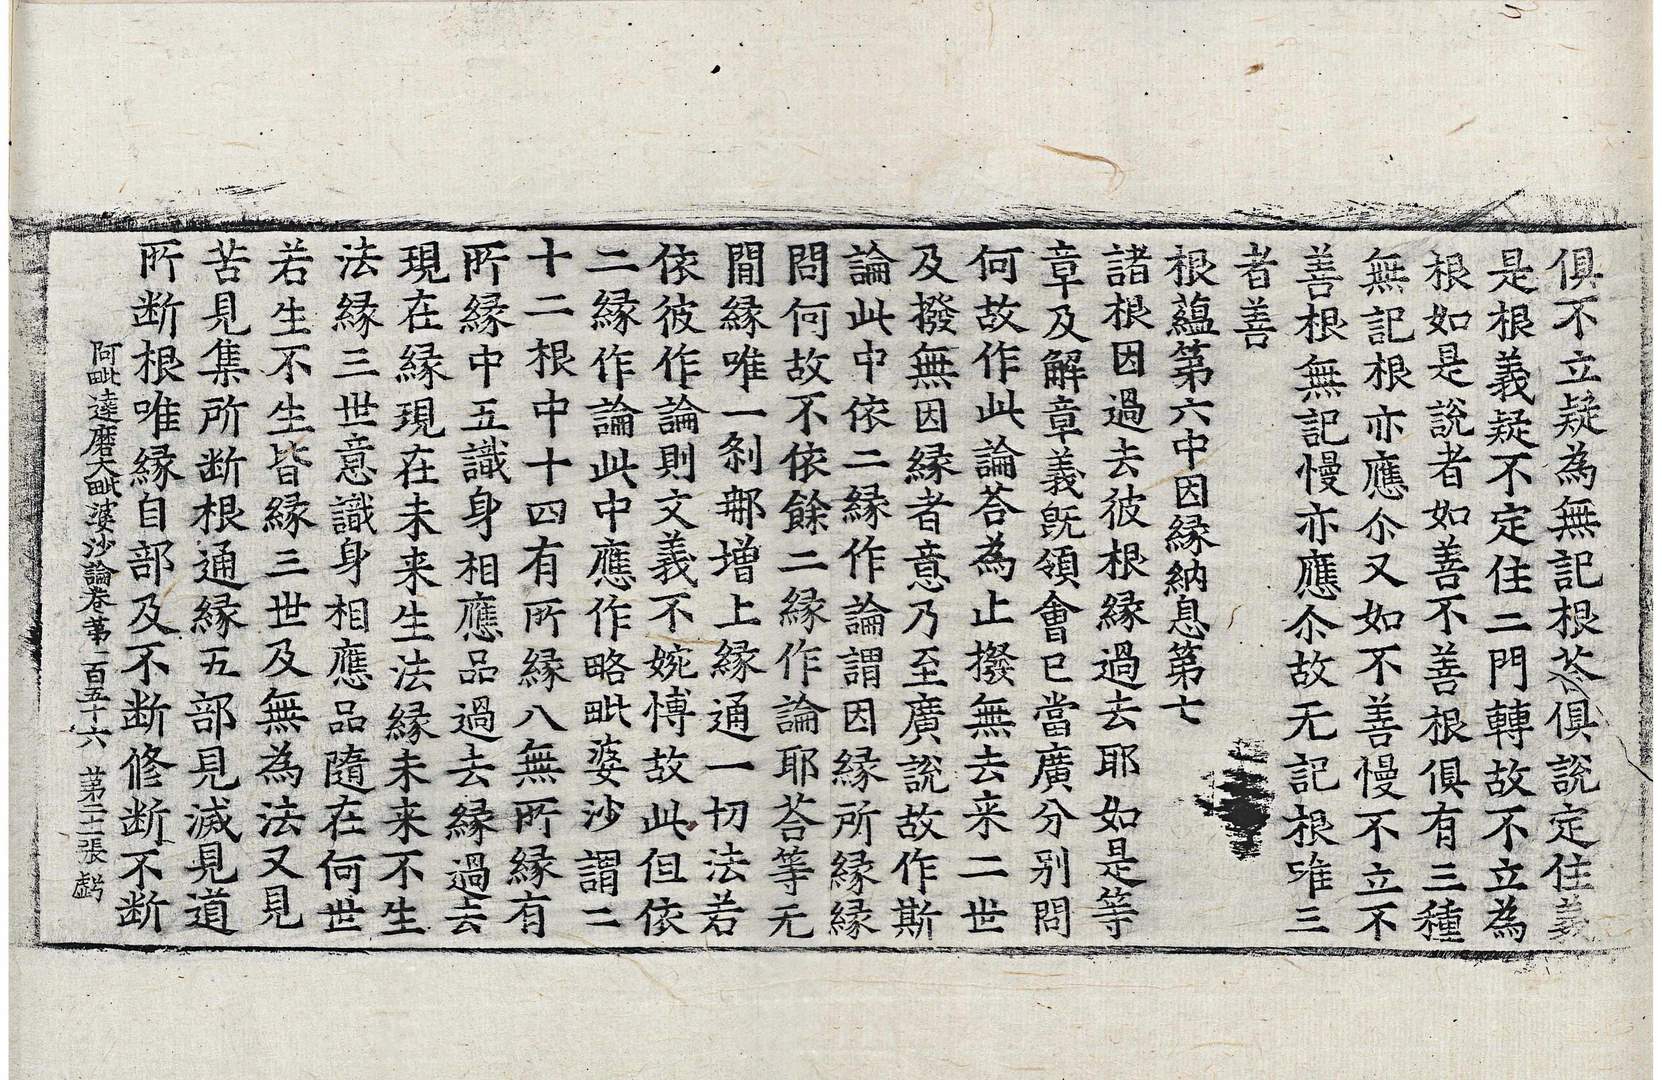 俱不立疑為無記根荅俱說定住義
是根義疑不定住二門轉故不立為
根如是說者如善不善根俱有三種
無記根亦應尒又如不善慢不立不
善根無記慢亦應尒故无記根唯三
者善
根蘊第六中因縁納息第七
諸根因過去彼根縁過去耶如是等
章及解章義旣領會已當廣分別問
何故作此論荅為止撥無去来二世
及撥無因縁者意乃至廣說故作斯
論此中依二縁作論謂因縁所縁縁
問何故不依餘二縁作論耶荅等无
間縁唯一刹那增上縁通一切法若
依彼作論則文義不婉愽故此但依
二縁作論此中應作略毗婆沙謂二
十二根中十四有所縁八無所縁有
所縁中五識身相應品過去縁過去
現在縁現在未来生法縁未来不生
法縁三世意識身相應品隨在何世
若生不生皆縁三世及無為法又見
苦見集所断根通縁五部見滅見道
所断根唯縁自部及不断修断不断
阿毗達磨大毗婆沙論卷第一百五十六 第二十一張 虧